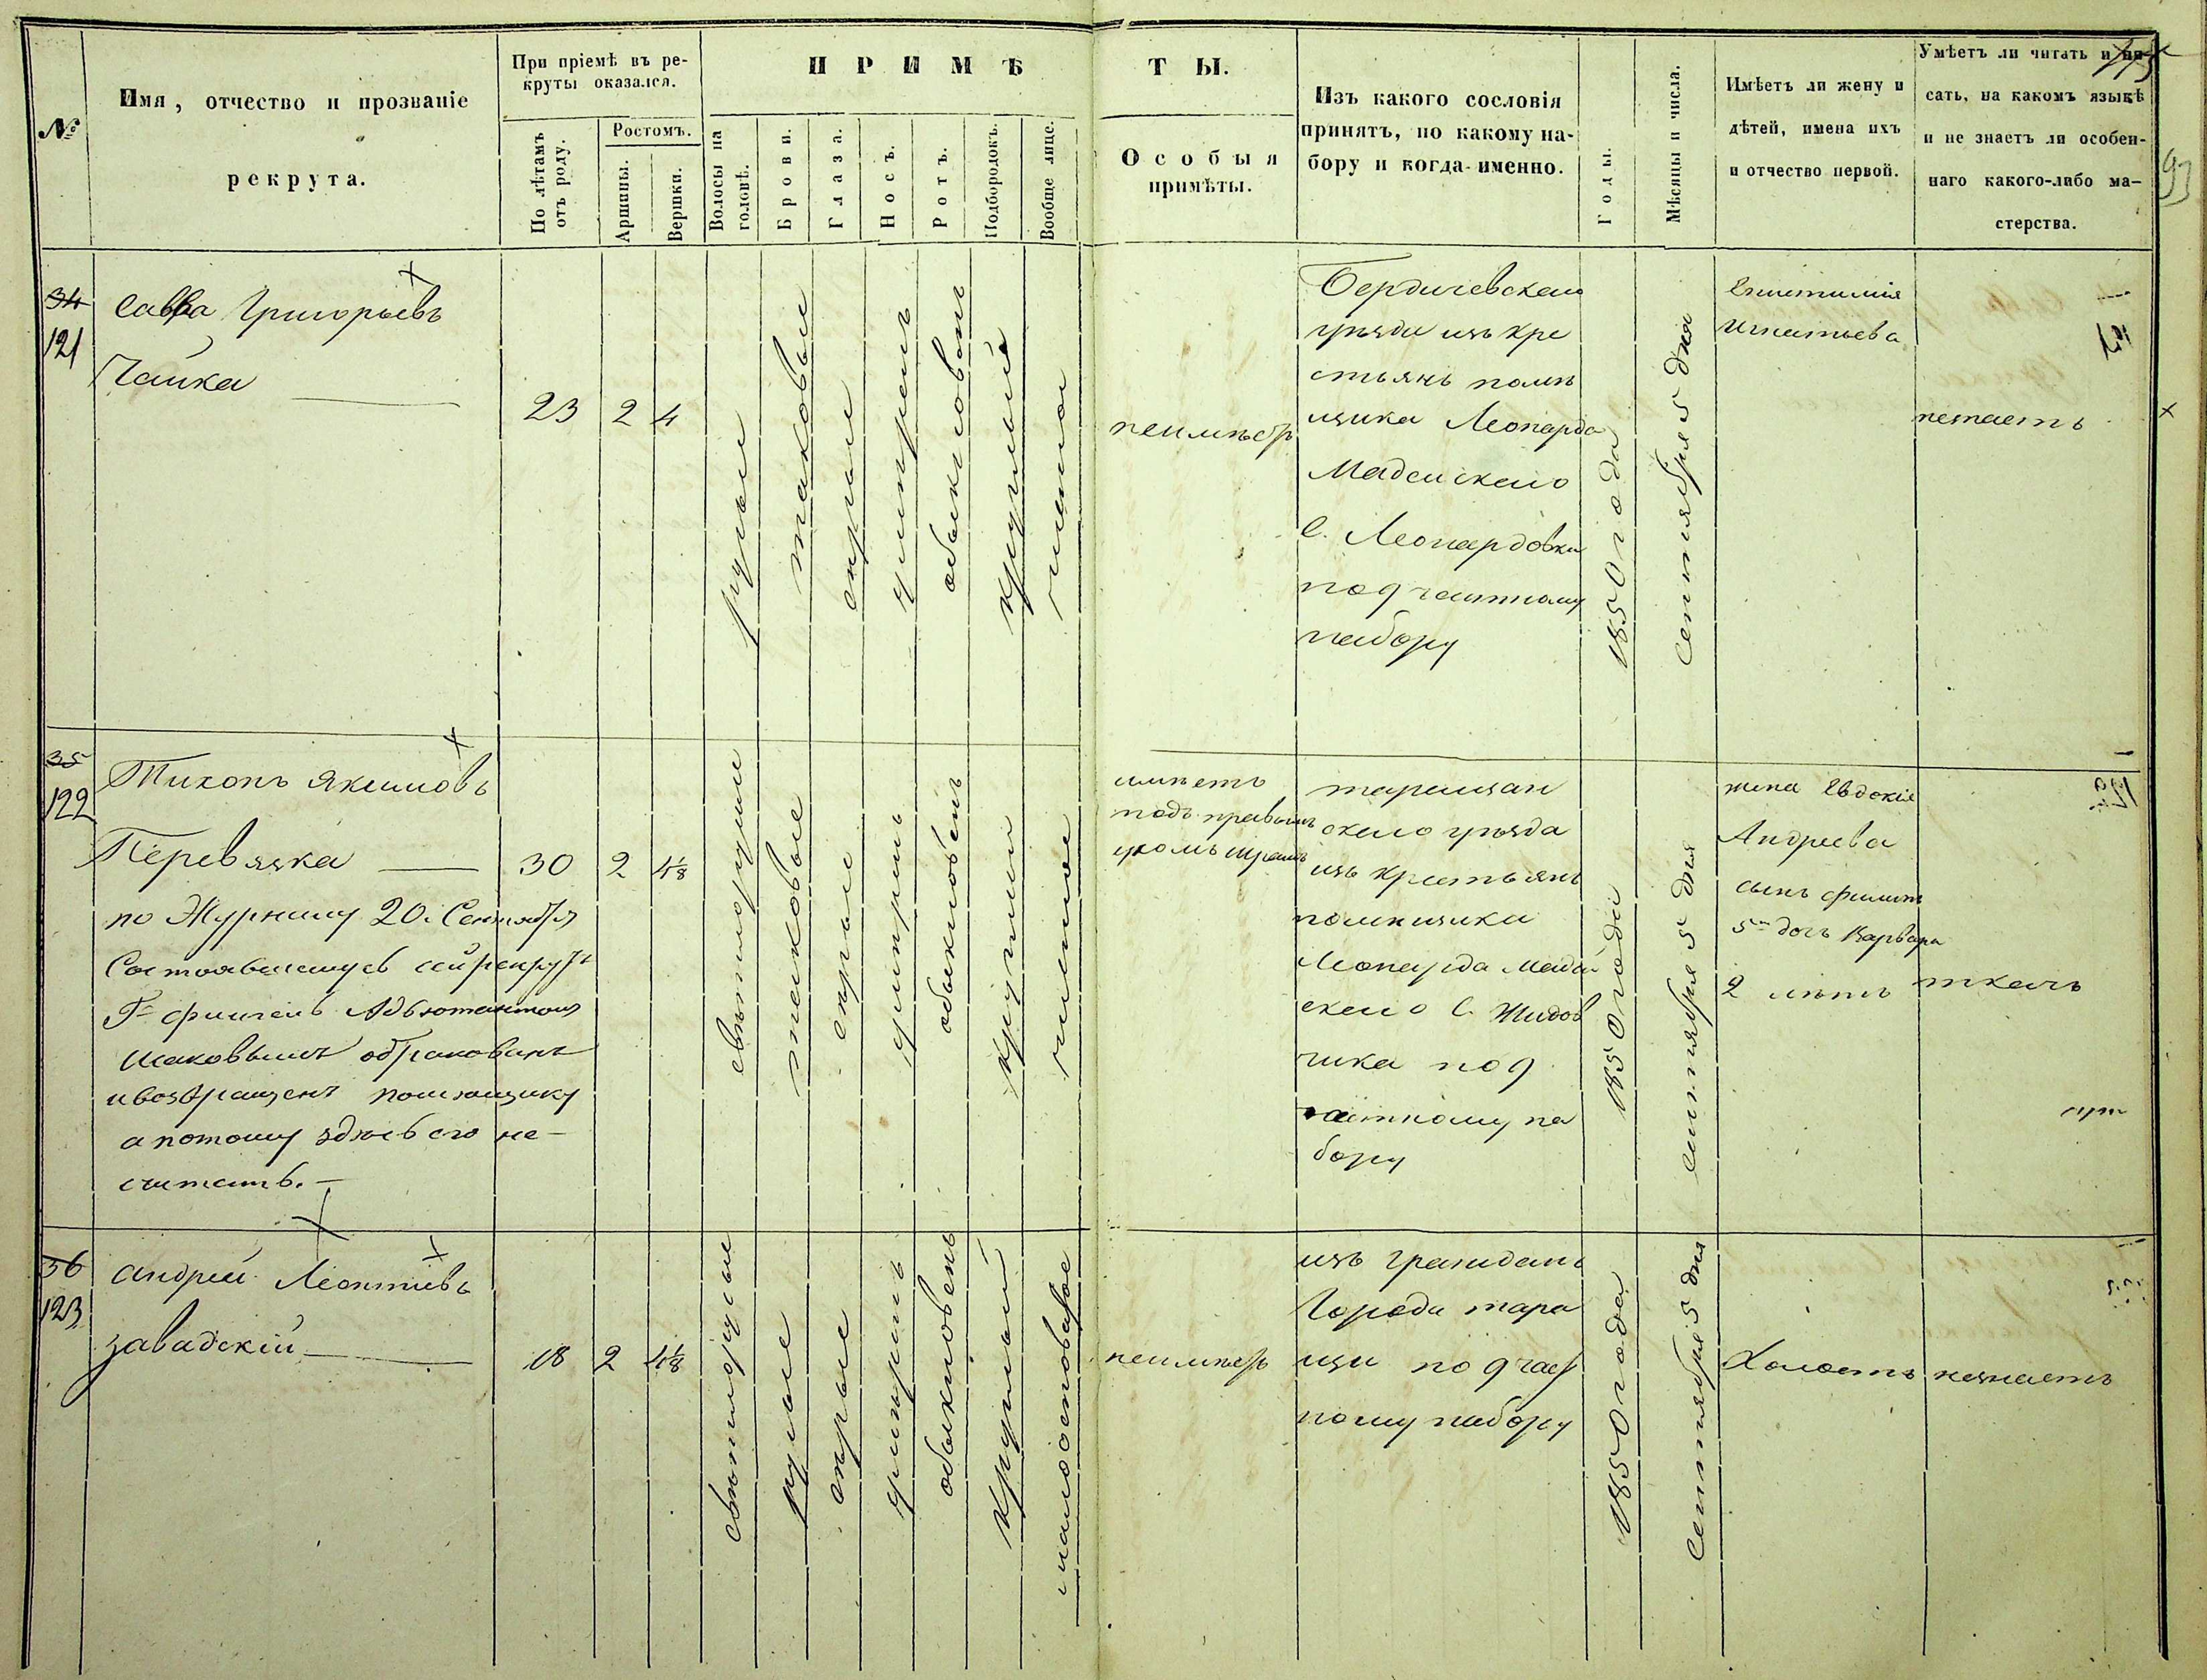 №
Имя, отчество и прозваніе
рекрута.
При пріемѣ въ ре-
круты оказался.
По лѣтамъ
отъ роду.
Ростомъ.
Аршины.
Вершки.
ПРИМѢТЫ.
Волосы на
головѣ.
Брови.
Глаза.
Носъ.
Ротъ.
Подбородокъ.
Вообще лице.
Особыя
примѣты.
Изъ какого сословія
принятъ, по какому на-
бору и когда именно.
Годы.
Мѣсяцы и числа.
Имѣетъ ли жену и
дѣтей, имена ихъ
и отчество первой.
Умѣетъ ли читать и пи-
сать, на какомъ языкѣ
и не знаетъ ли особен-
наго какого-либо ма-
стерства.
93
34
121
Савва Григорьевъ
Чайка
23
2
4
русые
таковые
серые
умѣренъ
обыкновенъ
круглый
чистое
неимѣетъ
Бердичевскаго
уѣзда изъ кре
стьянъ помѣ
щика Леонарда
Мадейскаго
С. Леонардовки
по 9 частному
набору
1850 года
Сентября 5 дня
Епистимія
Игнатьева
незнаетъ
35
122
Тихонъ Якимовъ
Перевязка
по Журналу 20. Сентября
Состоявшемуся сей рекрутъ
Г. флигель Адъютантомъ
обракованъ
и возвращенъ помѣщику
а потому здѣсь его не-
считать.
30
2
4 1/8
свѣтлорусые
таковые
серые
умѣренъ
обыкновенъ
круглый
чистое
имѣетъ
подъ правымъ
ухомъ шрамъ
таращан
скаго уѣзда
изъ крестьянъ
помѣщика
Леонарда Мадей
скаго С. Жидов
чика по 9
частному на
бору
1850 года
Сентября 5 дня
жена Евдокія
Андреева
сынъ филипъ
5 дочь Варвара
2 лѣтъ
ткачь
36
123
Андрей Леонтіевъ
Завадскій
18
2
4 1/8
свѣтлорусые
русые
серые
умѣренъ
обыкновенъ
круглый
малоосповатое
неимѣетъ
изъ гражданъ
Города тара
щи по 9 част
ному набору
1850 года
Сентября 5 дня
Холостъ
незнаетъ